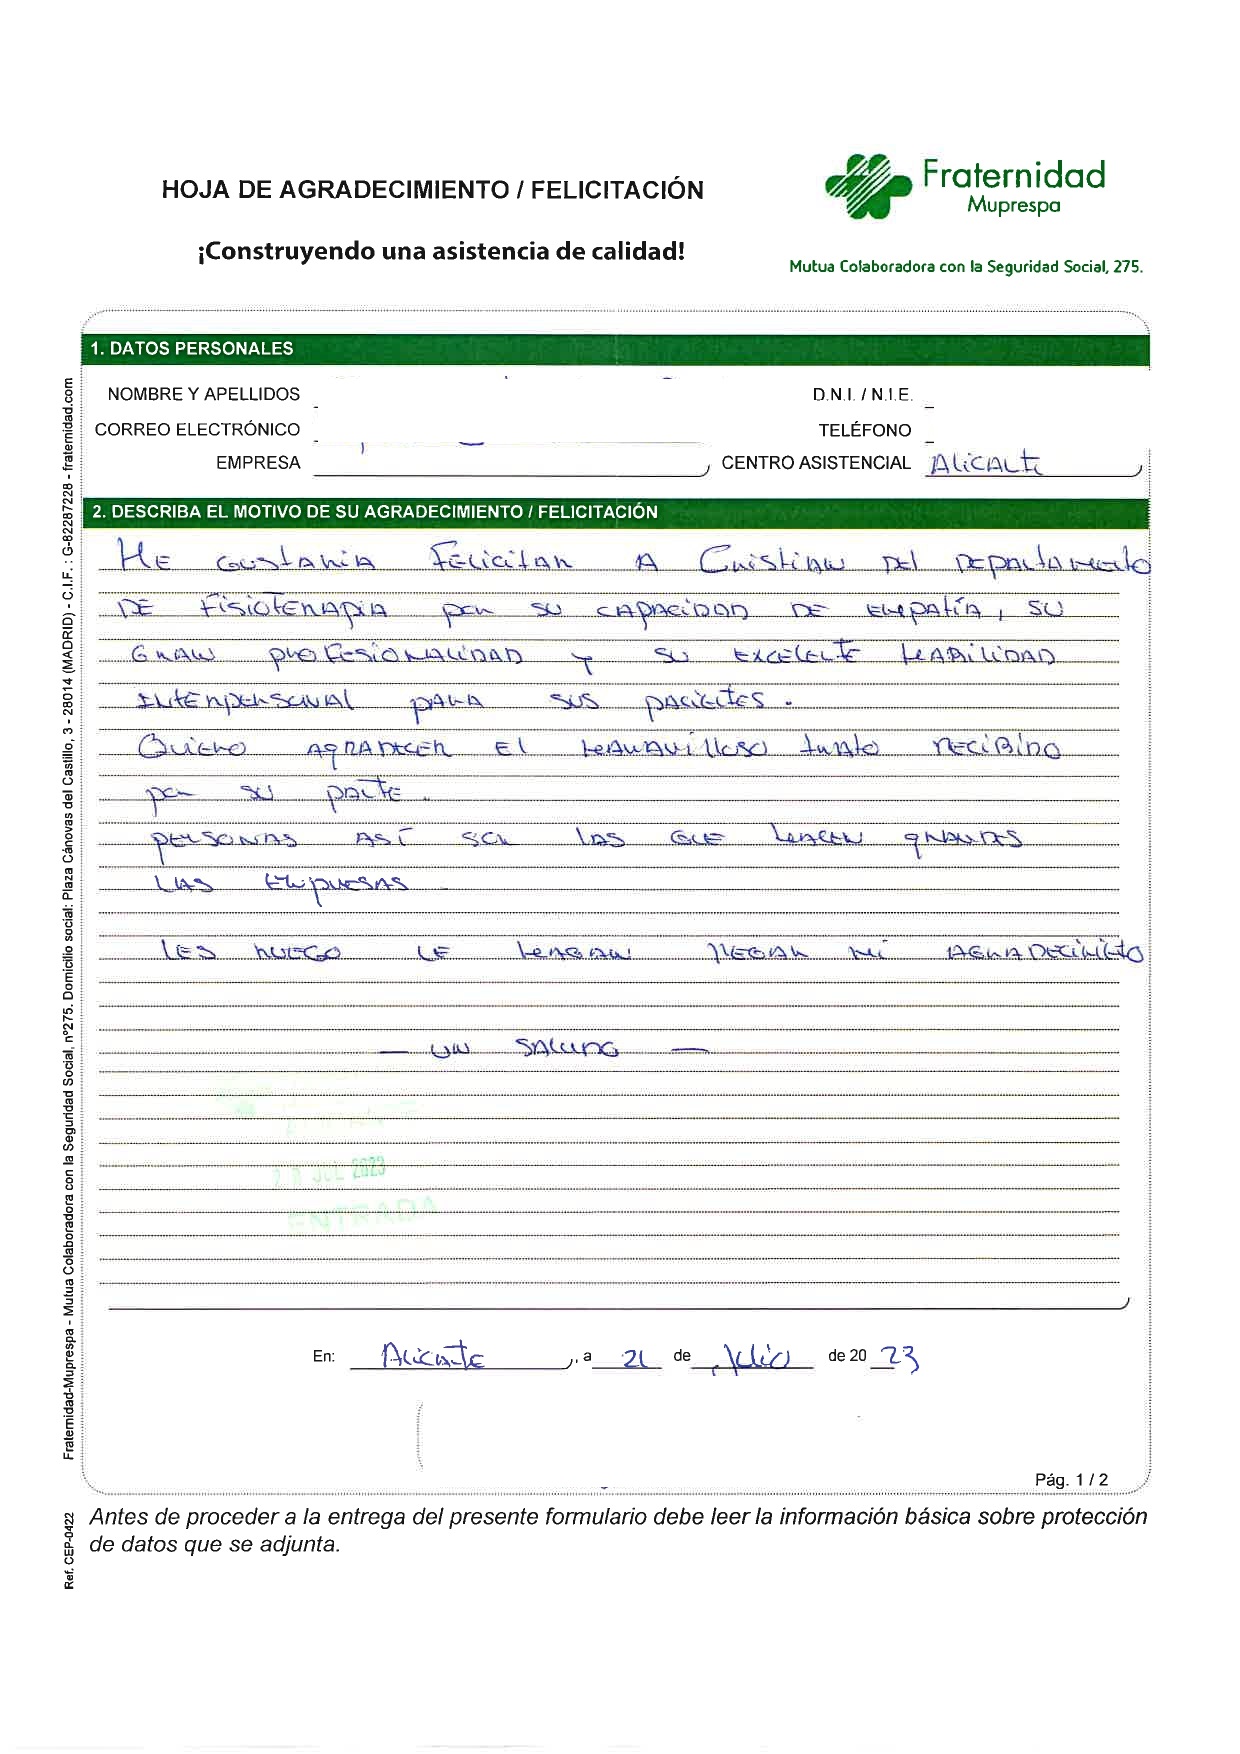 HOJA DE AGRADECIMIENTO / FELICITACIÓN
¡Construyendo una asistencia de calidad!
Fraternidad
Muprespa
Mutua Colaboradora con la Seguridad Social, 275.
1. DATOS PERSONALES
NOMBRE Y APELLIDOS
D.N.I. / N.I.E.
CORREO ELECTRÓNICO
TELÉFONO
EMPRESA
CENTRO ASISTENCIAL ALICANTE
2. DESCRIBA EL MOTIVO DE SU AGRADECIMIENTO / FELICITACIÓN
ME GUSTARIA FELICITAR A CRISTIAN DEL DEPARTAMENTO
DE FISIOTERAPIA POR SU CAPACIDAD DE EMPATÍA, SU
GRAN PROFESIONALIDAD Y SU EXCELENTE HABILIDAD
INTERPERSONAL PARA SUS PACIENTES.
QUIERO AGRADECER EL MARAVILLOSO TRATO RECIBIDO
POR SU PARTE.
PERSONAS ASÍ SON LAS QUE HACEN GRANDES
LAS EMPRESAS
LES RUEGO LE HAGAN LLEGAR MI AGRADECIMIENTO
— UN SALUDO —
JUL 2023
ENTRADA
En: Alicante, a 21 de Julio de 2023
Pág. 1 / 2
Antes de proceder a la entrega del presente formulario debe leer la información básica sobre protección
de datos que se adjunta.
Fraternidad-Muprespa - Mutua Colaboradora con la Seguridad Social, nº275. Domicilio social: Plaza Cánovas del Castillo, 3 - 28014 (MADRID) - C.I.F. : G-82287228 - fraternidad.com
Ref. CEP-0422